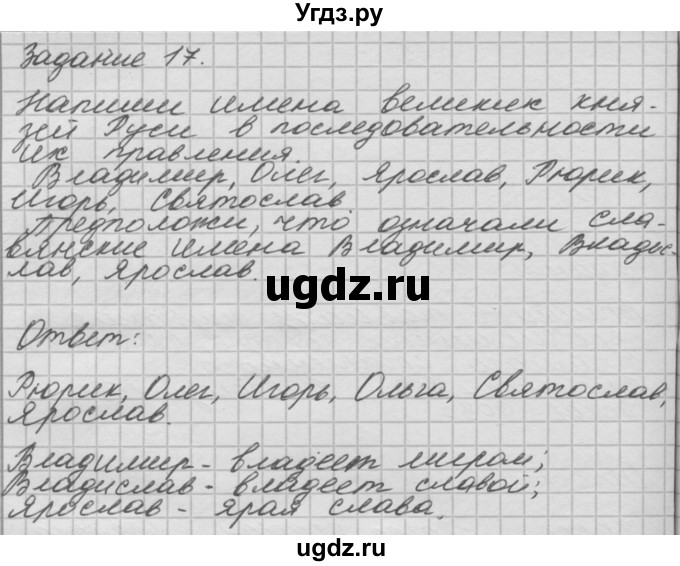 Угдз.ру
Задание 17.
Напиши имена великих кня-
зей Руси в последовательности
их правления.
Владимир, Олег, Ярослав, Рюрик,
Игорь, Святослав
Предположи, что означали сла-
вянские имена Владимир, Владис-
лав, Ярослав.
ugdz.ru
Ответ:
Рюрик, Олег, Игорь, Ольга, Святослав,
Ярослав.
Владимир - владеет миром;
Владислав - владеет славой;
Ярослав - ярая слава.
ugdz.ru